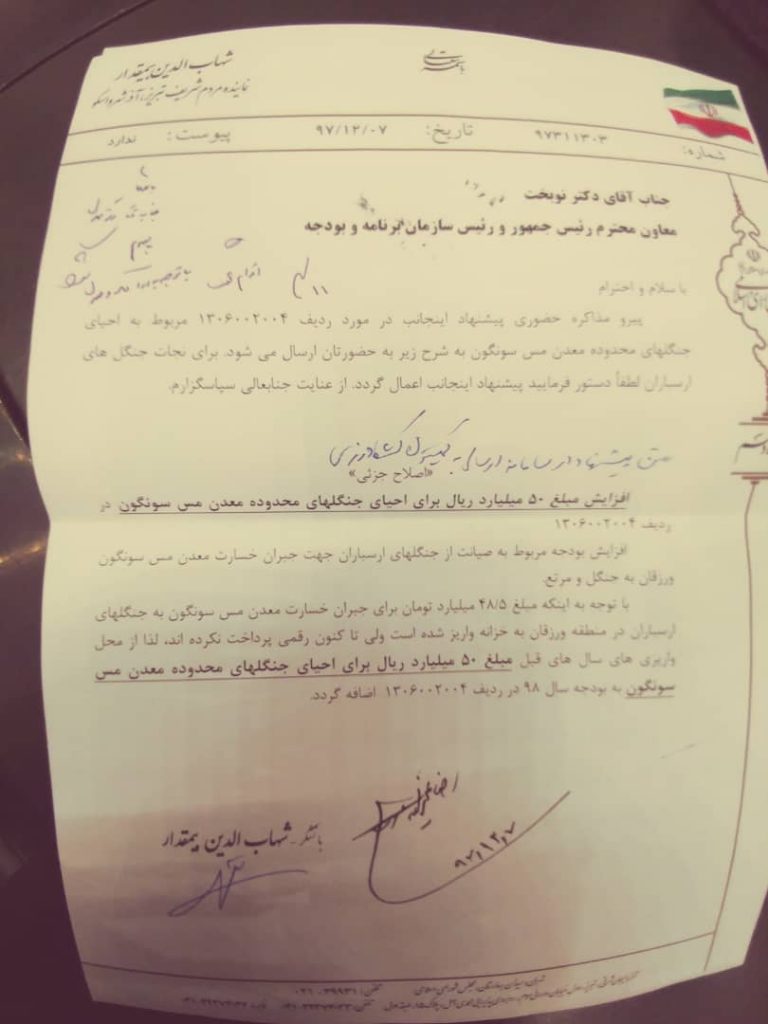 شهاب الدین بیمقدار
نماینده مردم شریف تبریز، آذرشهر و اسکو
شماره: ۹۷۳۱۱۳۰۳
تاریخ: ۹۷/۱۲/۰۷
پیوست: ندارد
جناب آقای دکتر نوبخت
معاون محترم رئیس جمهور و رئیس سازمان برنامه و بودجه
با سلام و احترام
پیرو مذاکره حضوری پیشنهاد اینجانب در مورد ردیف ۱۳۰۶۰۰۲۰۰۴ مربوط به احیای
جنگلهای محدوده معدن مس سونگون به شرح زیر به حضورتان ارسال می شود. برای نجات جنگل های
ارسباران لطفاً دستور فرمایید پیشنهاد اینجانب اعمال گردد. از عنایت جنابعالی سپاسگزارم.
متن پیشنهاد در سامانه ارسالی به کمیسیون کشاورزی
«اصلاح جزئی»
افزایش مبلغ ۵۰ میلیارد ریال برای احیای جنگلهای محدوده معدن مس سونگون در
ردیف ۱۳۰۶۰۰۲۰۰۴
افزایش بودجه مربوط به صیانت از جنگلهای ارسباران جهت جبران خسارت معدن مس سونگون
ورزقان به جنگل و مرتع.
با توجه به اینکه مبلغ ۴۸/۵ میلیارد تومان برای جبران خسارت معدن مس سونگون به جنگلهای
ارسباران در منطقه ورزقان به خزانه واریز شده است ولی تا کنون رقمی پرداخت نکرده اند، لذا از محل
واریزی های سال های قبل مبلغ ۵۰ میلیارد ریال برای احیای جنگلهای محدوده معدن مس
سونگون به بودجه سال ۹۸ در ردیف ۱۳۰۶۰۰۲۰۰۴ اضافه گردد.
با تشکر - شهاب الدین بیمقدار
۹۷,۱۲,۷